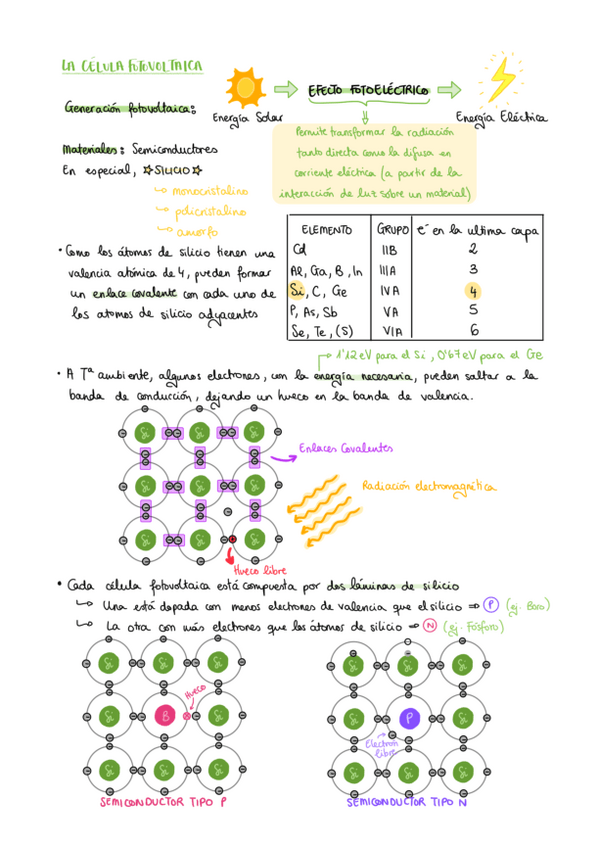 LA CÉLULA FOTOVOLTAICA
Generación fotovoltaica:
Energía Solar
EFECTO FOTOELÉCTRICO
Energía Eléctrica
Permite transformar la radiación
tanto directa como la difusa en
corriente eléctrica (a partir de la
interacción de luz sobre un material)
Materiales: Semiconductores
En especial, ☆SILICIO☆
↳ monocristalino
↳ policristalino
↳ amorfo
ELEMENTO GRUPO e⁻ en la ultima capa
Cd IIB 2
Al, Ga, B, In IIIA 3
Si, C, Ge IVA 4
P, As, Sb VA 5
Se, Te, (S) VIA 6
• Como los átomos de silicio tienen una
valencia atómica de 4, pueden formar
un enlace covalente con cada uno de
los atomos de silicio adyacentes
1'12 eV para el Si, 0'67 eV para el Ge
• A Tª ambiente, algunos electrones, con la energía necesaria, pueden saltar a la
banda de conducción, dejando un hueco en la banda de valencia.
Si Si Si
Si Si Si
Si Si Si
Enlaces Covalentes
Radiación electromagnética
Hueco libre
• Cada célula fotovoltaica está compuesta por dos láminas de silicio
↳ Una está dopada con menos electrones de valencia que el silicio ⇒ P (ej. Boro)
↳ La otra con más electrones que los átomos de silicio ⇒ N (ej. Fósforo)
Si Si Si
Si B Si
Si Si Si
Hueco
SEMICONDUCTOR TIPO P
Si Si Si
Si P Si
Si Si Si
Electrón
libre
SEMICONDUCTOR TIPO N